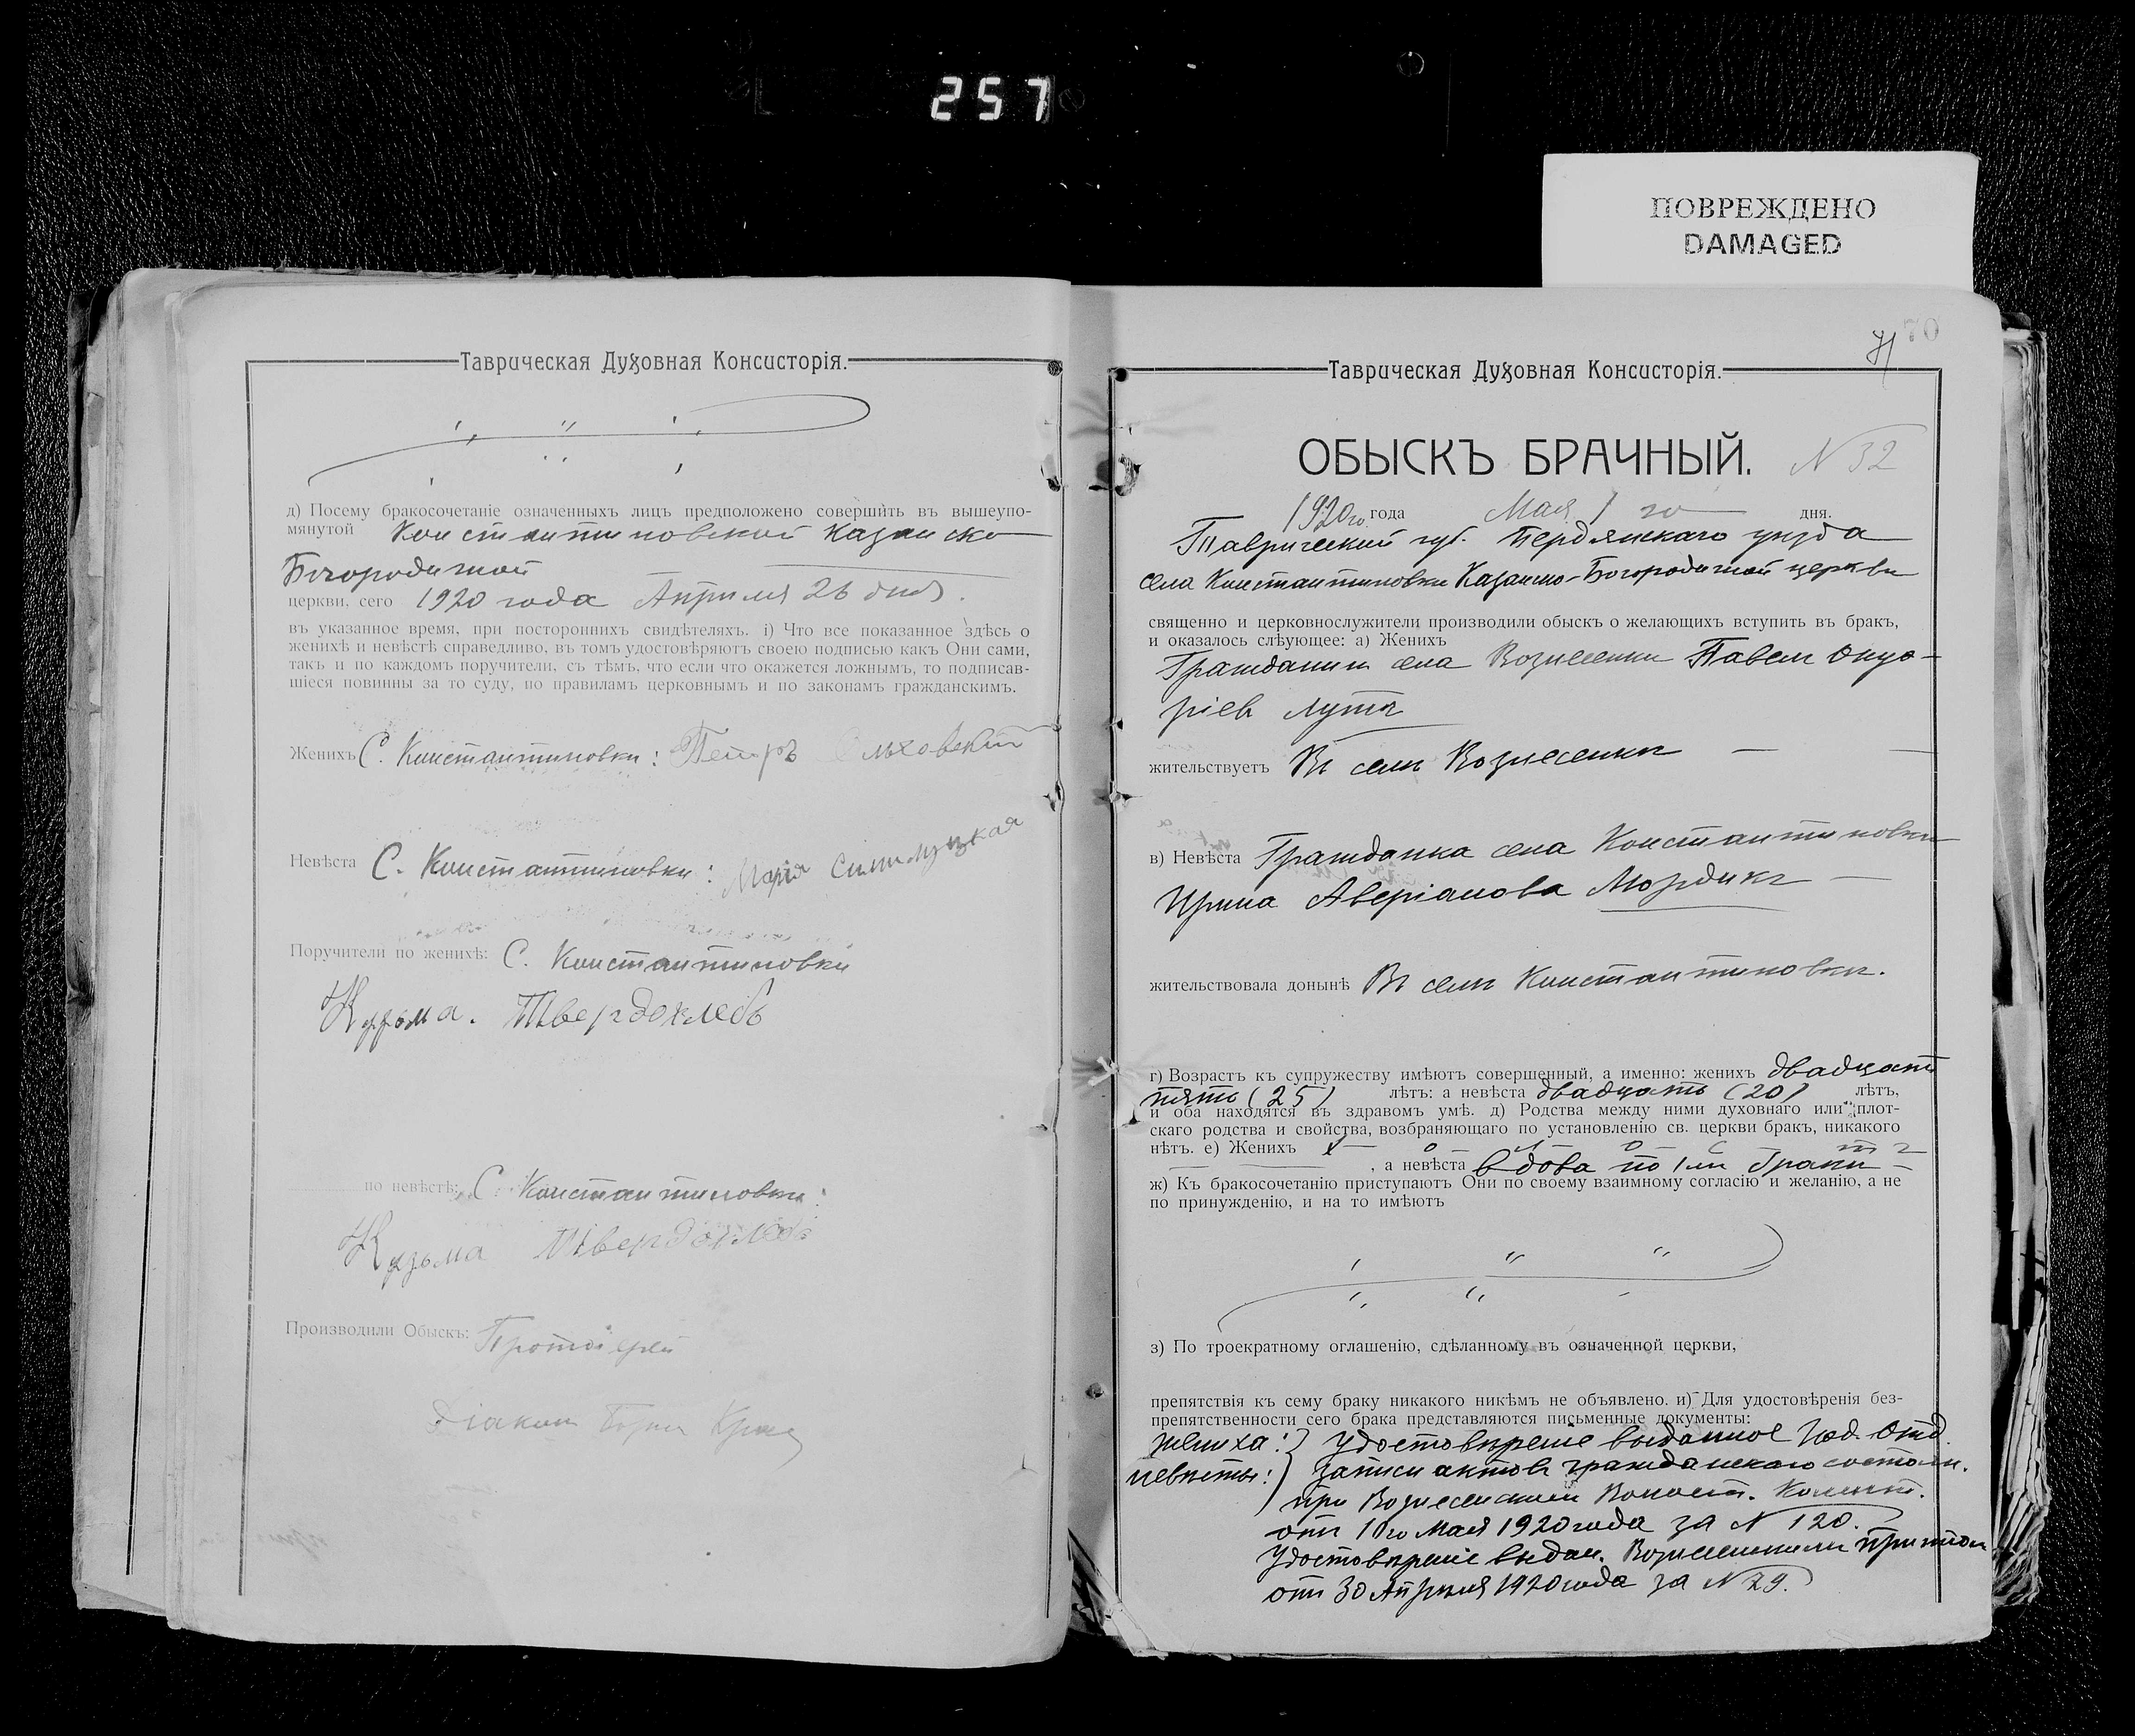 257
ПОВРЕЖДЕНО
DAMAGED
Таврическая Духовная Консисторія.
д) Посему бракосочетаніе означенныхъ лицъ предположено совершить въ вышеупо-
мянутой Константиновской Казанско
Богородичной
церкви, сего 1920 года Апреля 26 дня.
въ указанное время, при постороннихъ свидѣтеляхъ. і) Что все показанное здѣсь о
женихѣ и невѣстѣ справедливо, въ томъ удостовѣряютъ своею подписью какъ Они сами,
такъ и по каждомъ поручители, съ тѣмъ, что если что окажется ложнымъ, то подписав-
шіеся повинны за то суду, по правиламъ церковнымъ и по законамъ гражданскимъ.
Женихъ С. Константиновки: Петръ
Невѣста С. Константиновки: Марія
Поручители по женихѣ: С. Константиновки
Кузьма. Твердохлебъ
по невѣстѣ: С. Константиновки:
Кузьма Твердохлебъ
Производили Обыскъ: Протоіерей
Діакон
70
71
Таврическая Духовная Консисторія.
ОБЫСКЪ БРАЧНЫЙ. N 32
1920го года Мая 1 го дня.
Таврической губ. Бердянскаго уезда
села Константиновки Казанско-Богородичной церкви
священно и церковнослужители производили обыскъ о желающихъ вступить въ бракъ,
и оказалось слѣующее: а) Женихъ
Гражданин села Вознесенки Павел Онуф-
ріев Лута
жительствуетъ Въ селе Вознесенке
в) Невѣста Гражданка села Константиновки
Ирина Аверіанова Мордик
жительствовала донынѣ Въ селе Константиновке.
г) Возрастъ къ супружеству имѣютъ совершенный, а именно: женихъ двадцати
пять (25) лѣтъ: а невѣста двадцать (20) лѣтъ,
и оба находятся въ здравомъ умѣ. д) Родства между ними духовнаго или плот-
скаго родства и свойства, возбраняющаго по установленію св. церкви бракъ, никакого
нѣтъ. е) Женихъ х о л о с т
, а невѣста вдова по 1му браку
ж) Къ бракосочетанію приступаютъ Они по своему взаимному согласію и желанію, а не
по принужденію, и на то имѣютъ
з) По троекратному оглашенію, сдѣланному въ означенной церкви,
препятствія къ сему браку никакого никѣмъ не объявлено. и) Для удостовѣренія без-
препятственности сего брака представляются письменные документы:
Жениха: Удостоверение выданное Отд.
невесты: Записи актов гражданскаго состоян.
при Вознесенском Волост.
от 1го Мая 1920 года за N 120.
Удостоверение выдан. Вознесенским причтом
от 30 Апреля 1920 года за N 79.